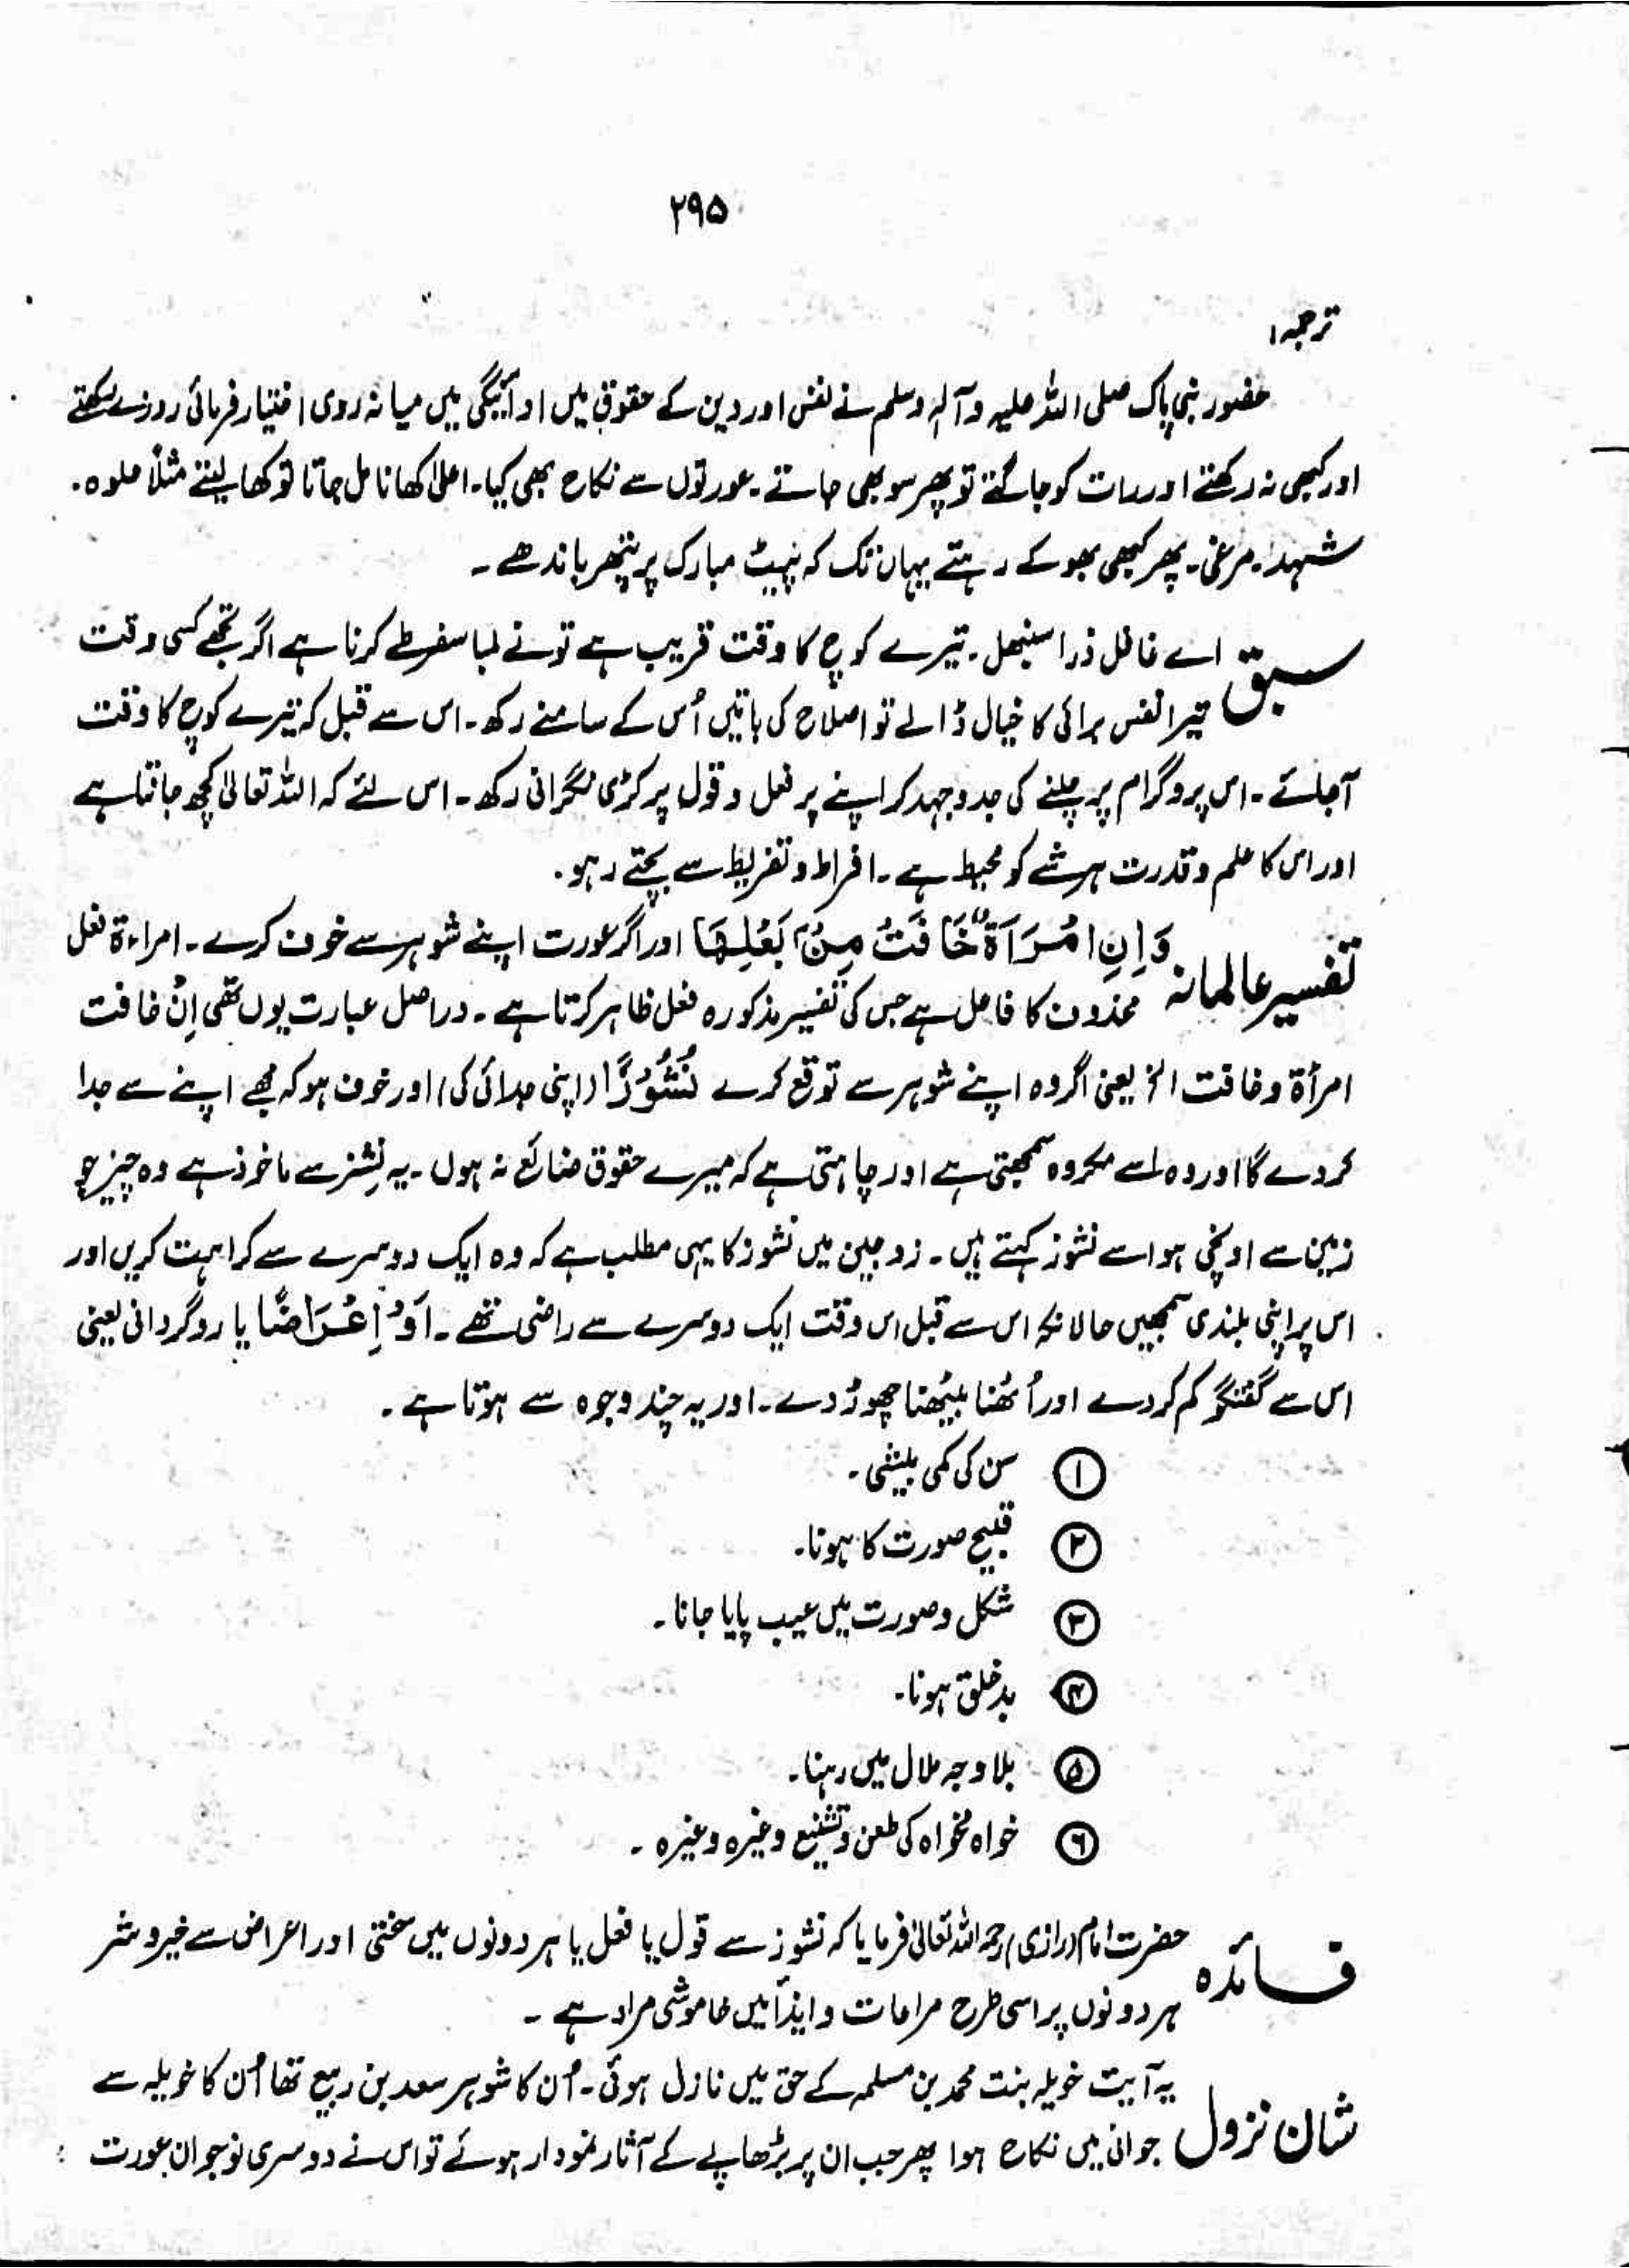 ۲۹۵
ترجمہ؛
حضور نبی پاک صلی اللہ علیہ وآلہ وسلم نے نفس اور دین کے حقوق میں ادائیگی میں میانہ روی اختیار فرمائی روزے رکھتے
اور کبھی نہ رکھتے اور رات کو جاگتے تو پھر سو بھی جاتے۔ عورتوں سے نکاح بھی کیا۔ اعلیٰ کھانا مل جاتا تو کھا لیتے مثلاً حلوہ۔
شہد۔ مرغی۔ پھر کبھی بھوکے رہتے یہاں تک کہ پیٹ مبارک پر پتھر باندھے۔
سبق اے غافل ذرا سنبھل۔ تیرے کوچ کا وقت قریب ہے تو نے لمبا سفر طے کرنا ہے اگر تجھے کسی وقت
تیرا نفس برائی کا خیال ڈالے تو اصلاح کی باتیں اُس کے سامنے رکھ۔ اس سے قبل کہ تیرے کوچ کا وقت
آجائے۔ اس پروگرام پر چلنے کی جدوجہد کر اپنے ہر فعل و قول پر کڑی نگرانی رکھ۔ اس لئے کہ اللہ تعالیٰ کچھ جانتا ہے
اور اس کا علم و قدرت ہر شے کو محیط ہے۔ افراط و تفریط سے بچتے رہو۔
تفسیر عالمانہ وَاِنِ امْرَاَةٌ خَافَتْ مِنْۢ بَعْلِهَا اور اگر عورت اپنے شوہر سے خوف کرے۔ امراءۃ فعل
محذوف کا فاعل ہے جس کی تفسیر مذکورہ فعل ظاہر کرتا ہے۔ دراصل عبارت یوں تھی اِنْ خافت
امرأۃ وخافت الخ یعنی اگر وہ اپنے شوہر سے توقع کرے نُشُوْزًا (اپنی جدائی کی) اور خوف ہو کہ مجھے اپنے سے جدا
کردے گا اور وہ اسے مکروہ سمجھتی ہے اور چاہتی ہے کہ میرے حقوق ضائع نہ ہوں۔ یہ نشز سے ماخوذ ہے وہ چیز جو
زمین سے اونچی ہو اسے نشوز کہتے ہیں۔ زوجین میں نشوز کا یہی مطلب ہے کہ وہ ایک دوسرے سے کراہت کریں اور
اس پر اپنی بلندی سمجھیں حالانکہ اس سے قبل اس وقت ایک دوسرے سے راضی تھے۔ اَوْ اِعْرَاضًا یا روگردانی یعنی
اس سے گفتگو کم کردے اور اُٹھنا بیٹھنا چھوڑ دے۔ اور یہ چند وجوہ سے ہوتا ہے۔
① سن کی کمی بیشی۔
② قبیح صورت کا ہونا۔
③ شکل و صورت میں عیب پایا جانا۔
④ بدخلق ہونا۔
⑤ بلاوجہ ملال میں رہنا۔
⑥ خواہ مخواہ کی طعن و تشنیع وغیرہ وغیرہ۔
فائدہ حضرت امام (رازی) رحمہ اللہ تعالیٰ فرمایا کہ نشوز سے قول یا فعل یا ہر دونوں میں سختی اور اعراض سے خیر و شر
ہر دونوں پر اسی طرح مراعات و ایذا میں خاموشی مراد ہے۔
شان نزول یہ آیت خویلہ بنت محمد بن مسلمہ کے حق میں نازل ہوئی۔ اُن کا شوہر سعد بن ربیع تھا اُن کا خویلہ سے
جوانی میں نکاح ہوا پھر جب ان پر بڑھاپے کے آثار نمودار ہوئے تو اس نے دوسری نوجوان عورت